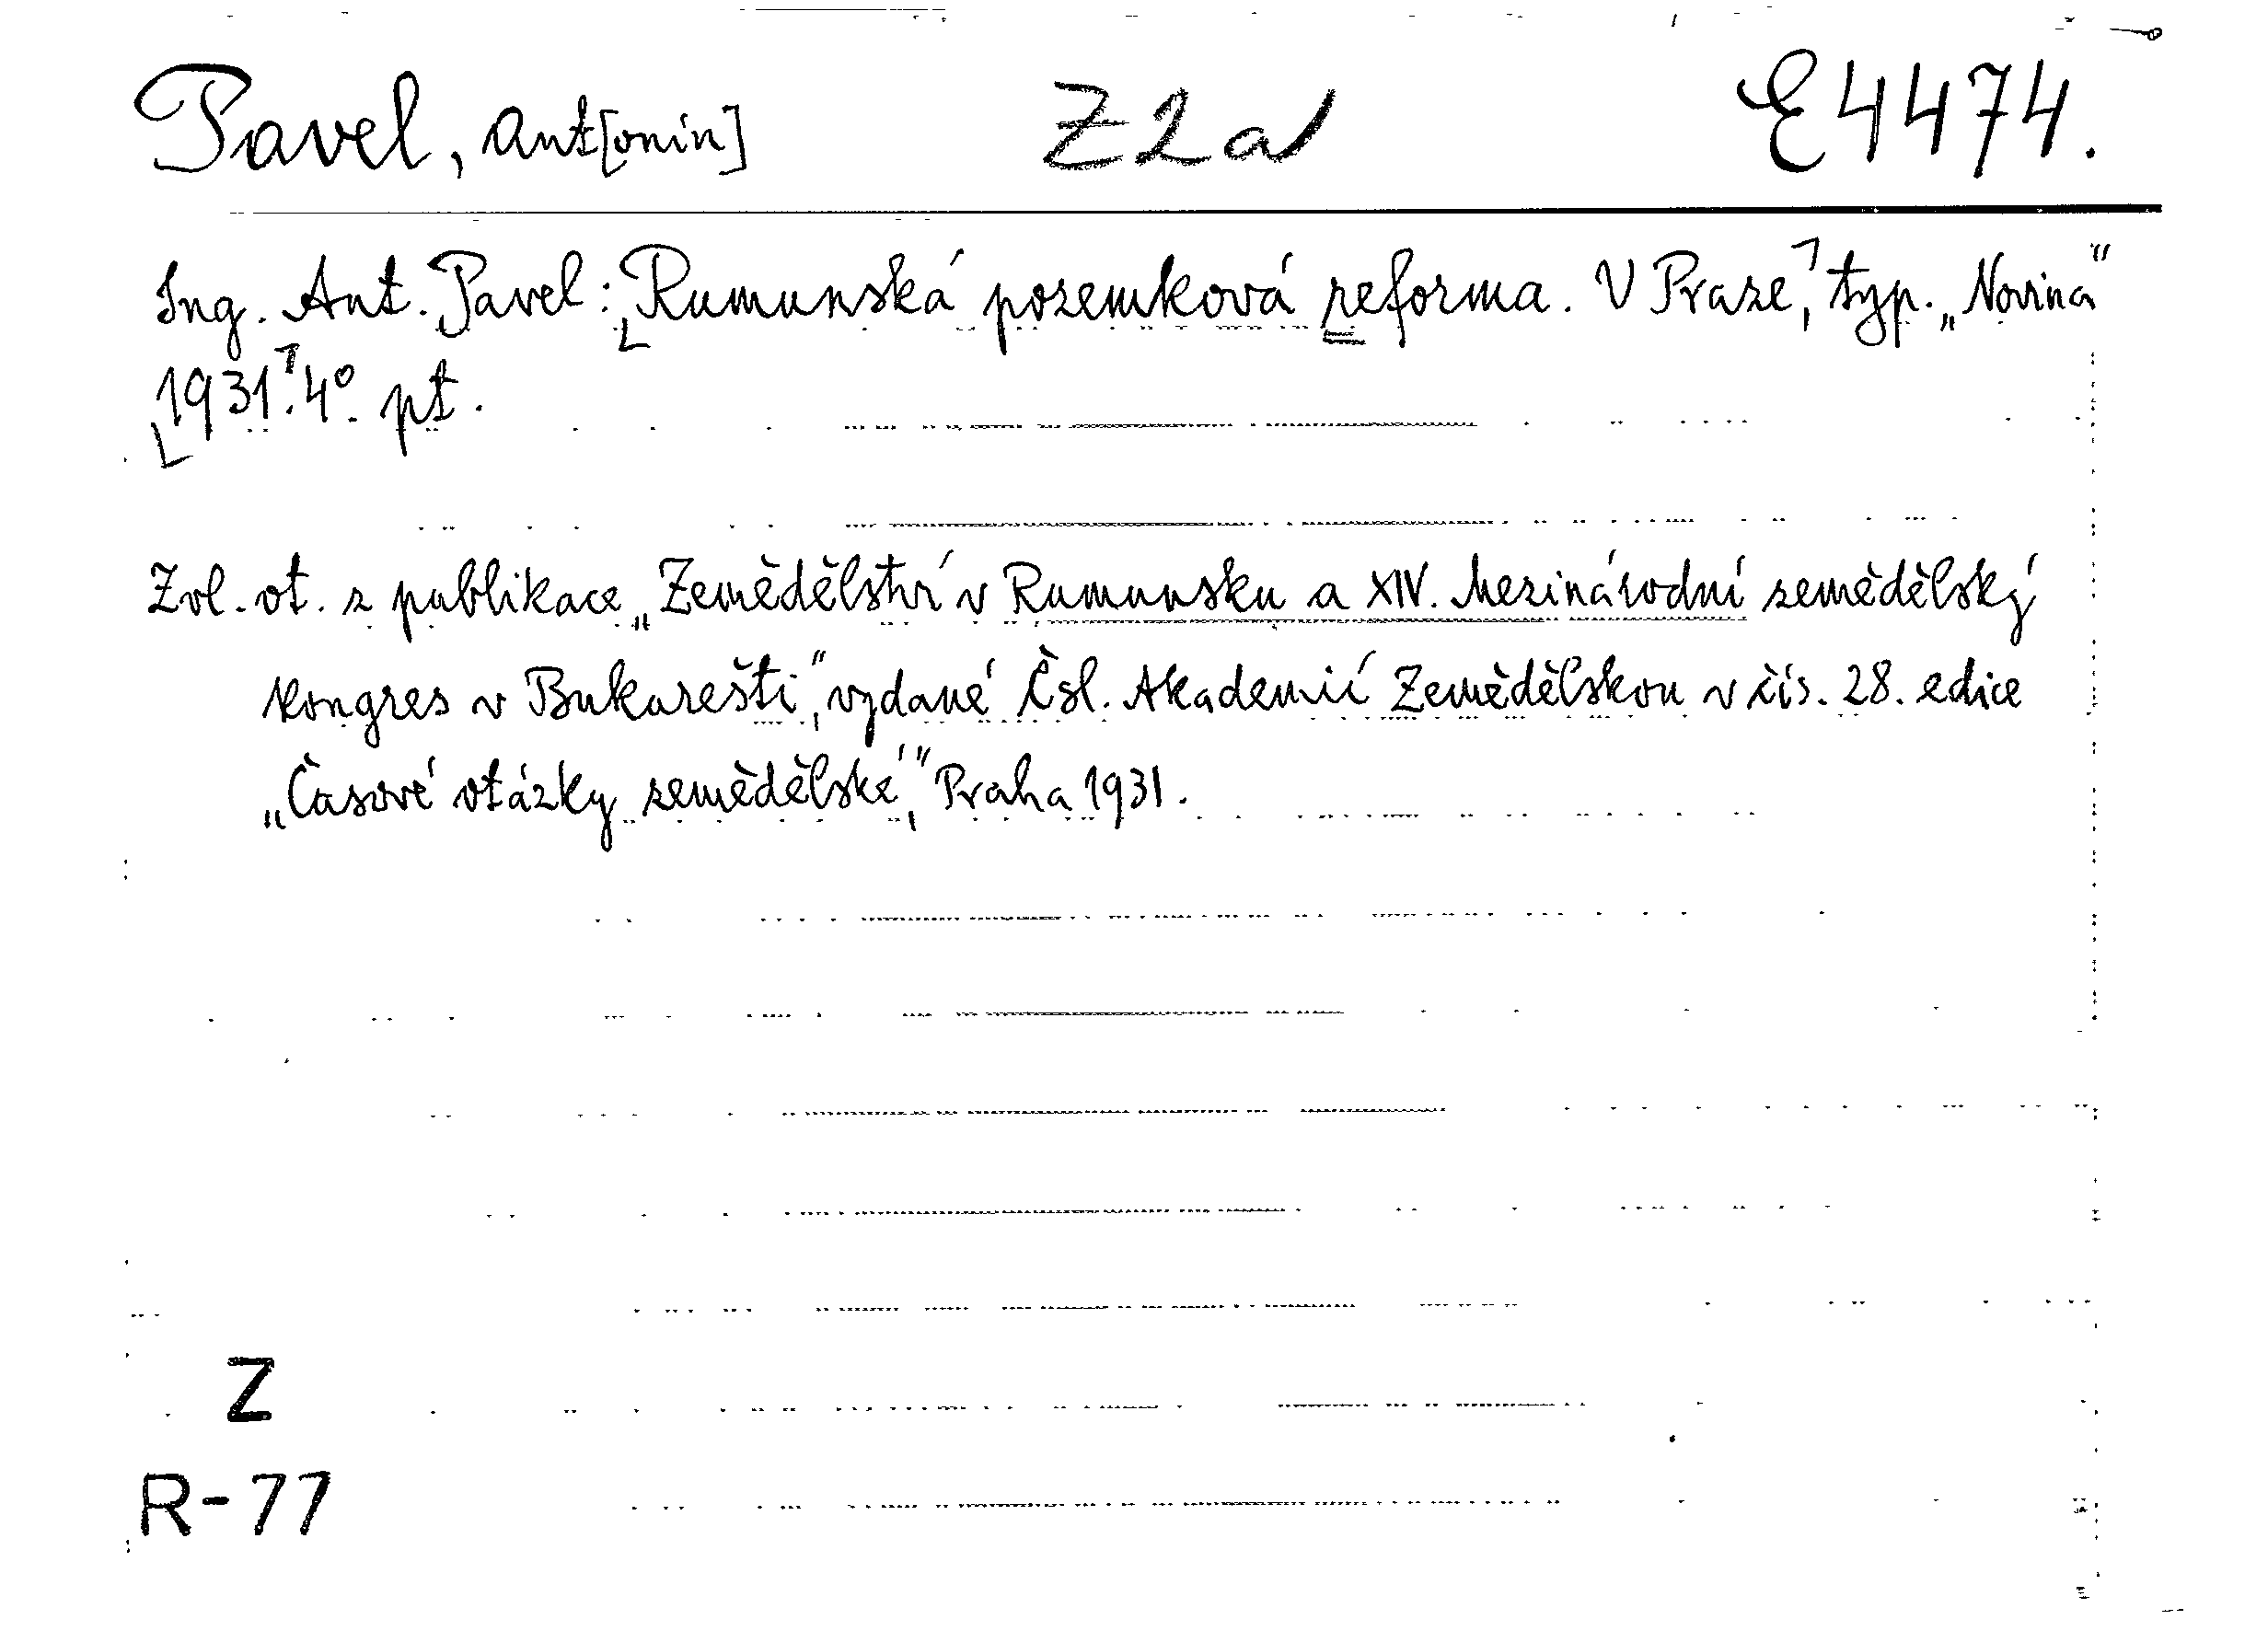 Pavel, Ant[onín] Z2a E4474.
Ing. Ant. Pavel: Rumunská pozemková reforma. V Praze, typ. „Novina"
1931. 4°. pt.
Zvl. ot. z publikace „Zemědělství v Rumunsku a XIV. Mezinárodní zemědělský
kongres v Bukarešti", vydané Čsl. Akademií Zemědělskou v čís. 28. edice
„Časové otázky zemědělské", Praha 1931.
Z
R-77